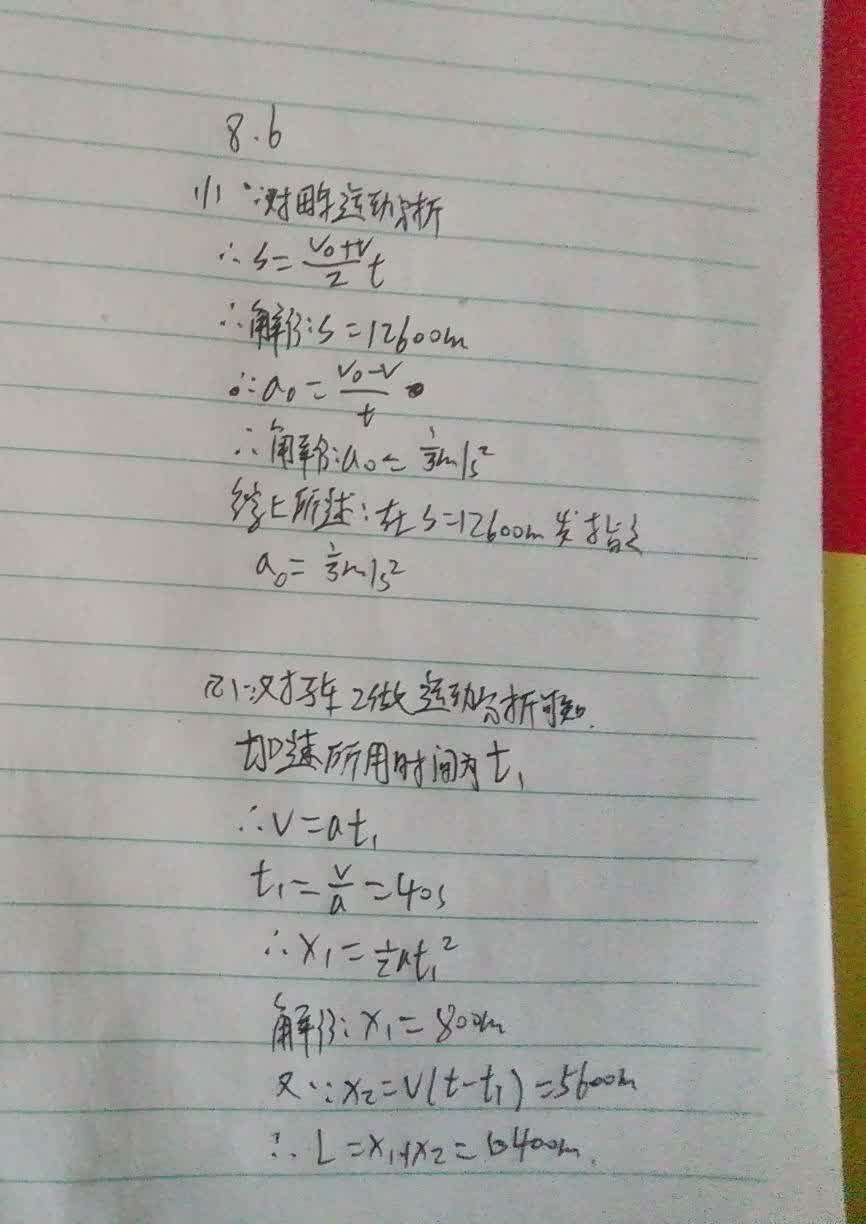 8.6
(1) ∵对母车运动分析
∴ s = (v₀+v)/2 t
∴解得: s = 12600m
∴ a₀ = (v₀-v)/t
∴解得: a₀ = 1/3 m/s²
综上所述: 在 s=12600m 发指令
a₀ = 1/3 m/s²
(2) ∵对子车2做运动分析可知.
加速所用时间为 t₁
∴ v = at₁
t₁ = v/a = 40s
∴ x₁ = 1/2 at₁²
解得: x₁ = 800m
又∵ x₂ = v(t-t₁) = 5600m
∴ L = x₁+x₂ = 6400m.